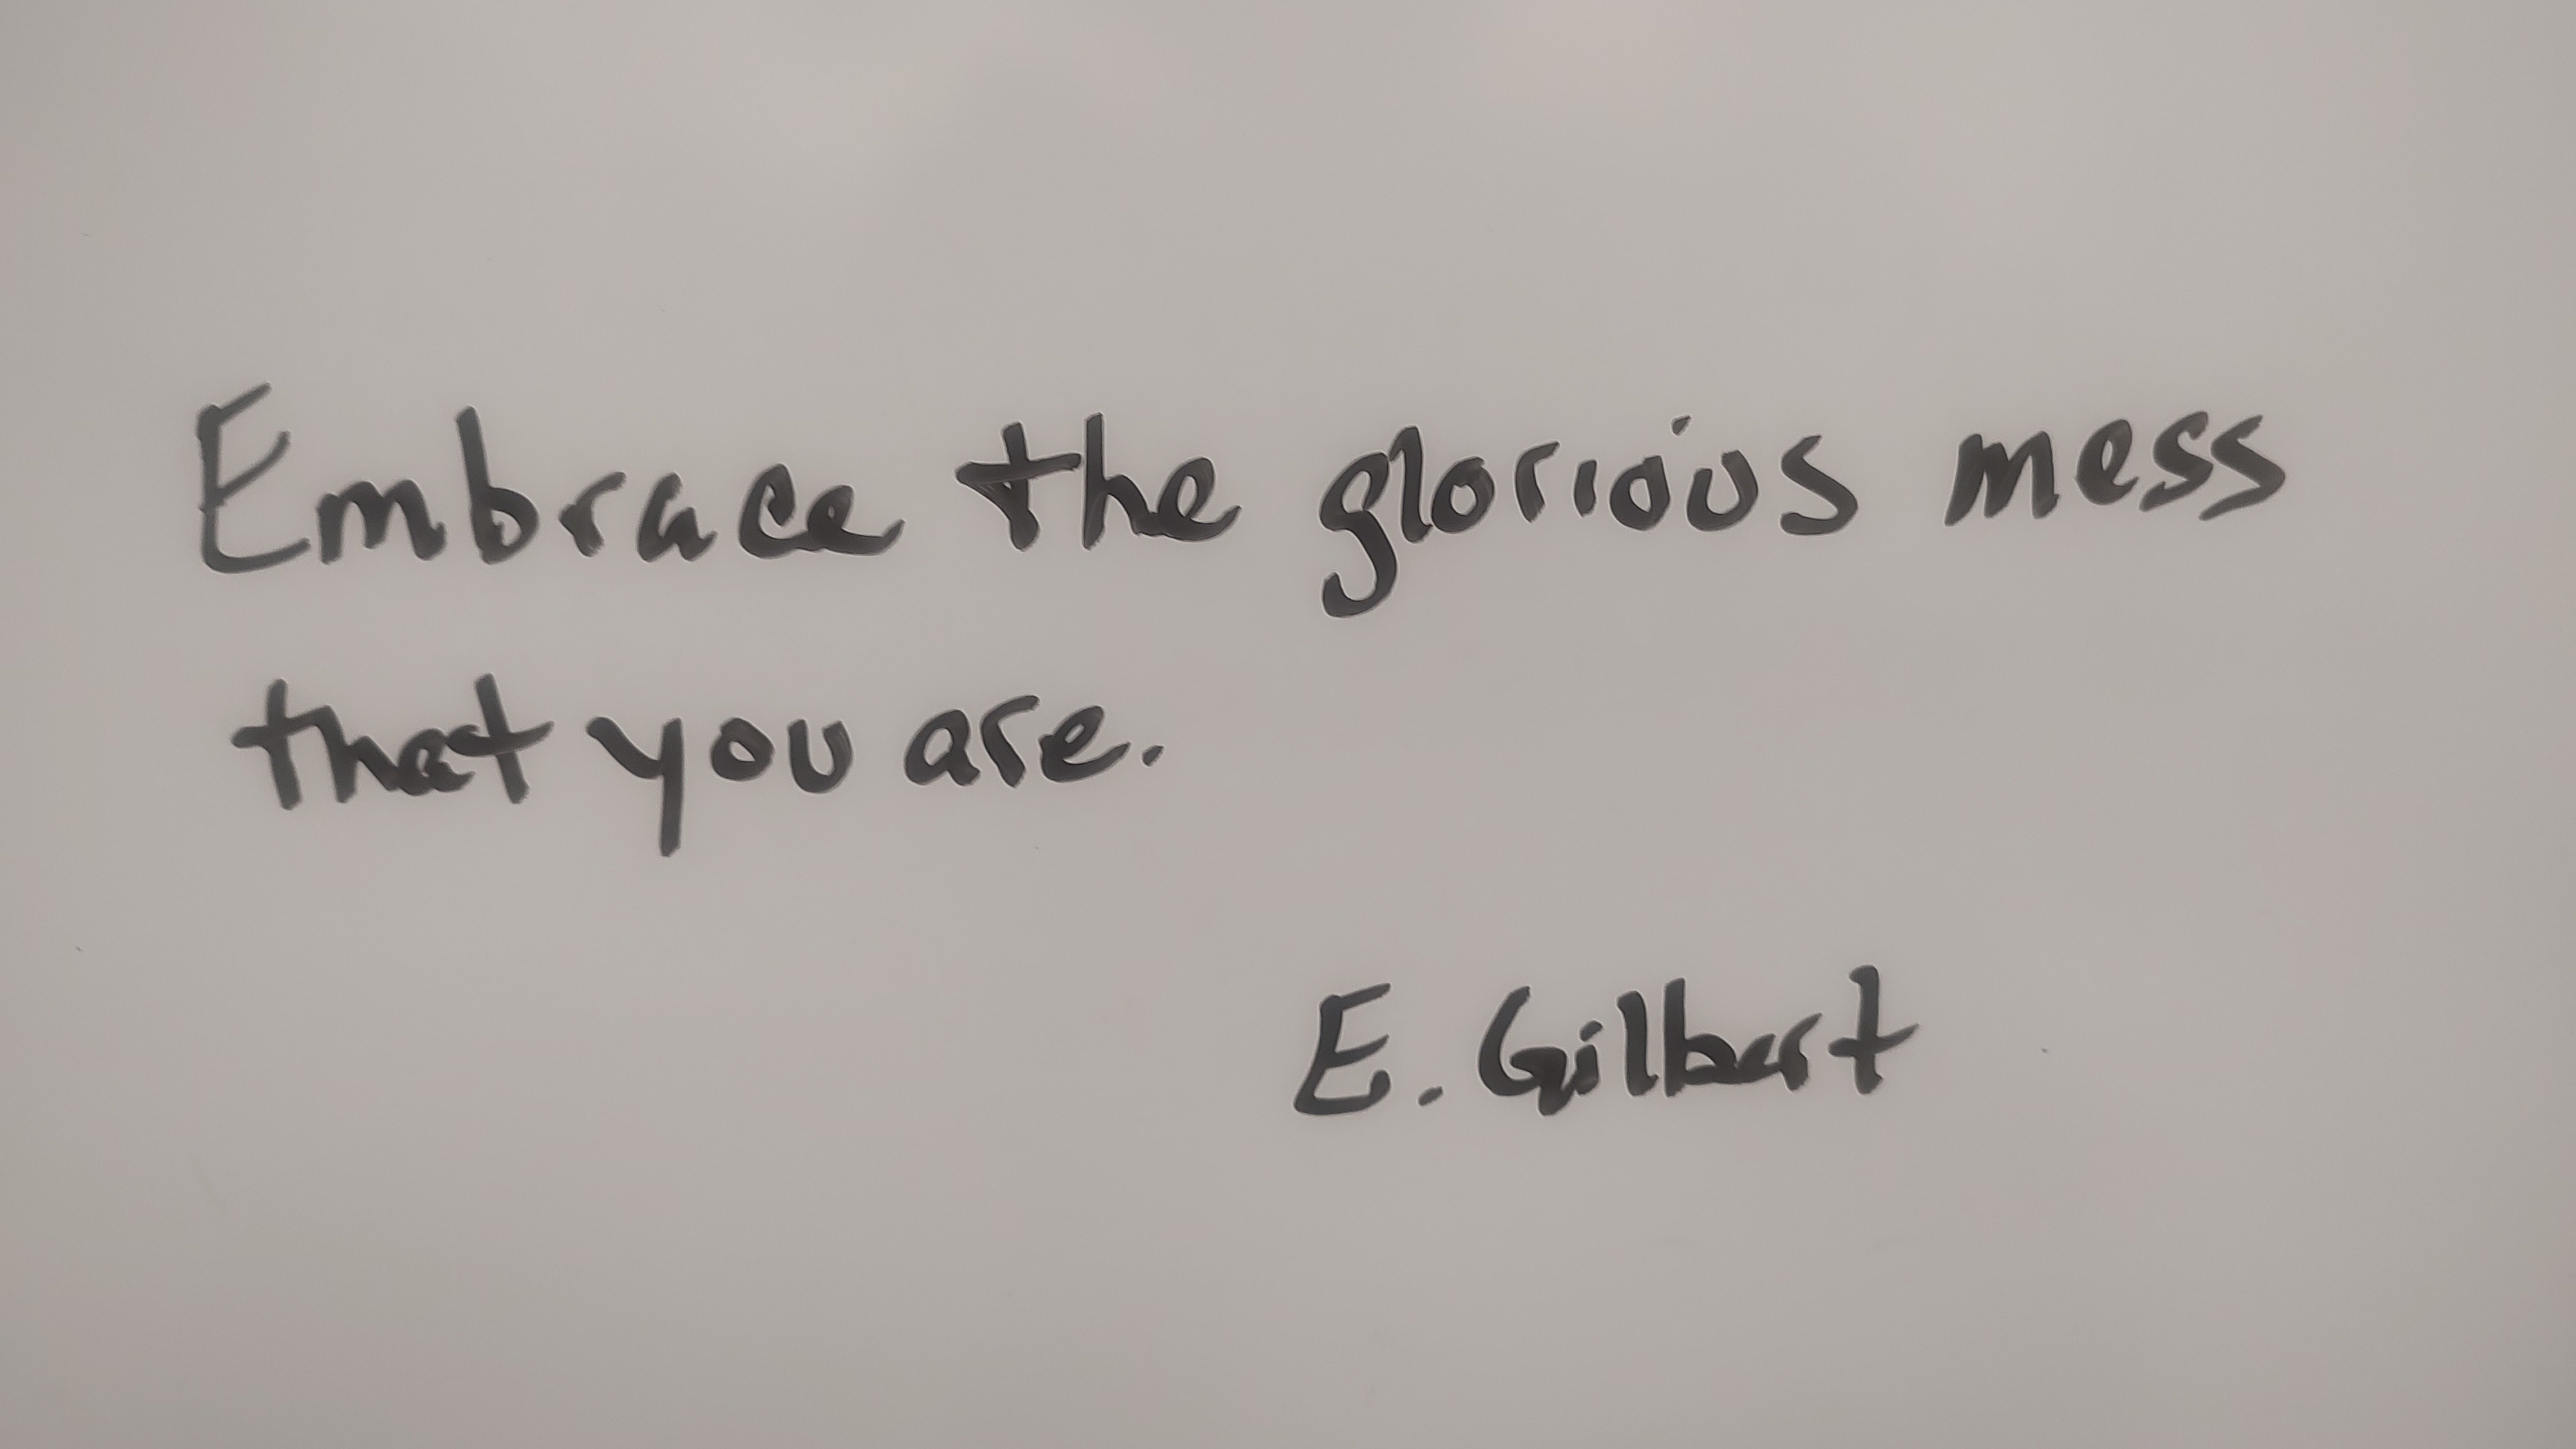 Embrace the glorious mess
that you are.
E. Gilbert